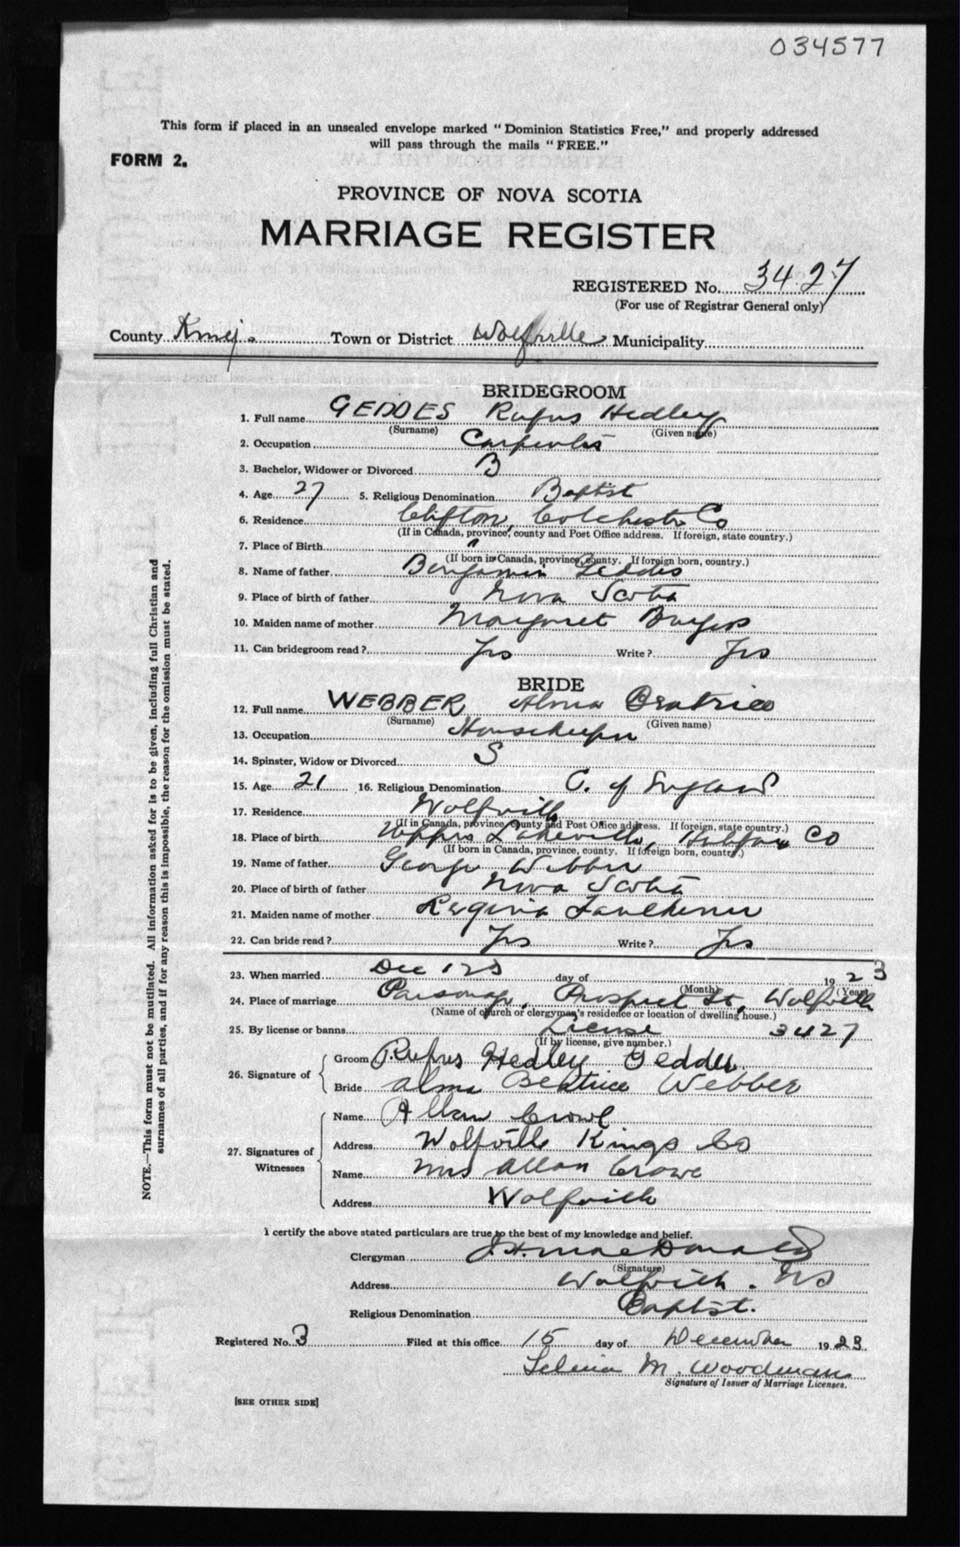 034577
This form if placed in an unsealed envelope marked "Dominion Statistics Free," and properly addressed
will pass through the mails "FREE."
FORM 2.
PROVINCE OF NOVA SCOTIA
MARRIAGE REGISTER
REGISTERED No. 3427
(For use of Registrar General only)
County Kings Town or District Wolfville Municipality
BRIDEGROOM
1. Full name GEDDES Rufus Hedley
(Surname) (Given name)
2. Occupation Carpenter
3. Bachelor, Widower or Divorced B
4. Age 27 5. Religious Denomination Baptist
6. Residence Clifton, Colchester Co
(If in Canada, province, county and Post Office address. If foreign, state country.)
7. Place of Birth "
(If born in Canada, province, county. If foreign born, country.)
8. Name of father Benjamin Geddes
9. Place of birth of father Nova Scotia
10. Maiden name of mother Margaret
11. Can bridegroom read? Yes Write? Yes
BRIDE
12. Full name WEBBER Alma Beatrice
(Surname) (Given name)
13. Occupation Housekeeper
14. Spinster, Widow or Divorced S
15. Age 21 16. Religious Denomination C. of England
17. Residence Wolfville
(If in Canada, province county and Post Office address. If foreign, state country.)
18. Place of birth Upper Lakeville, Halifax Co
(If born in Canada, province, county. If foreign born, country.)
19. Name of father George Webber
20. Place of birth of father Nova Scotia
21. Maiden name of mother Regina Faulkener
22. Can bride read? Yes Write? Yes
23. When married Dec 12th day of 1923
(Month) (Year)
24. Place of marriage Parsonage, Prospect St, Wolfville
(Name of church or clergyman's residence or location of dwelling house.)
25. By license or banns License 3427
(If by license, give number.)
26. Signature of
Groom Rufus Hedley Geddes
Bride Alma Beatrice Webber
27. Signatures of Witnesses
Name Allan Crowe
Address Wolfville Kings Co
Name Mrs Allan Crowe
Address Wolfville
I certify the above stated particulars are true to the best of my knowledge and belief.
Clergyman J. H. MacDonald
(Signature)
Address Wolfville. NS
Religious Denomination Baptist.
Registered No. 3 Filed at this office 15 day of December 1923
M. Woodman
Signature of Issuer of Marriage Licenses.
[SEE OTHER SIDE]
NOTE.—This form must not be mutilated. All information asked for is to be given, including full Christian and
surnames of all parties, and if for any reason this is impossible, the reason for the omission must be stated.